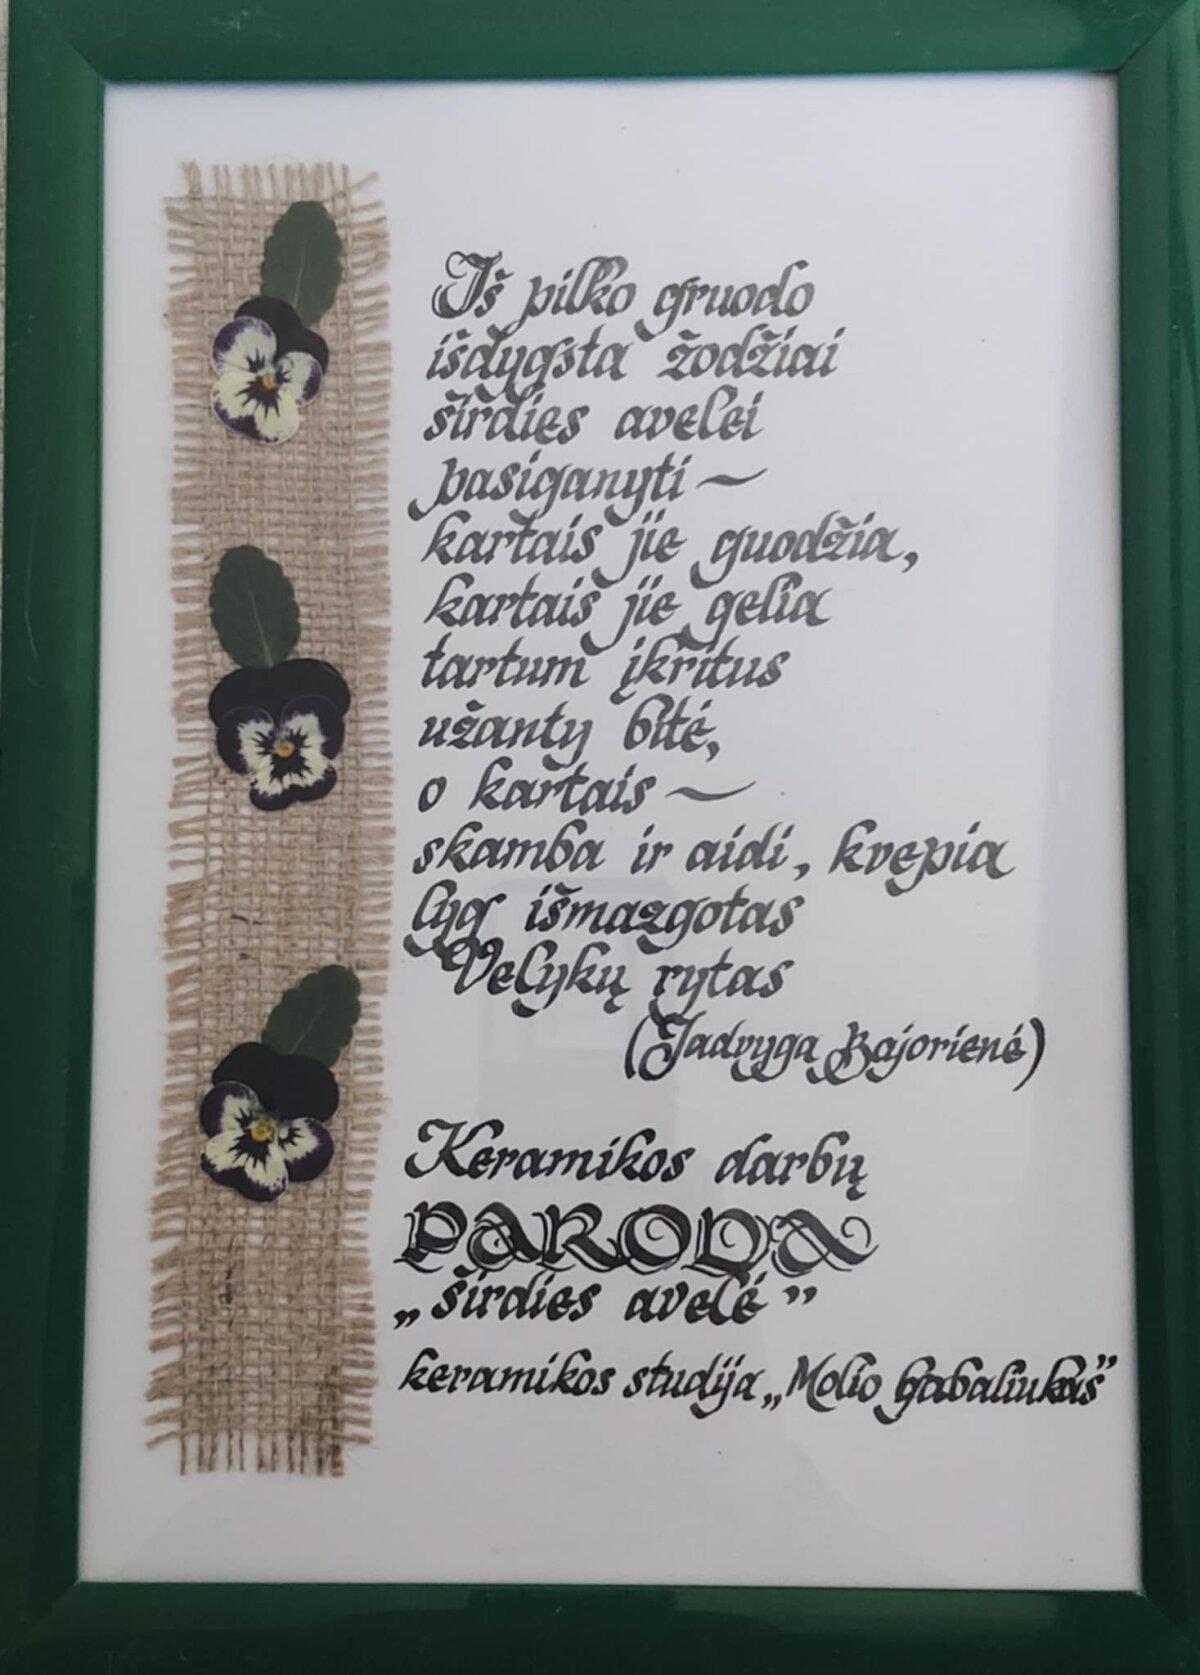 Iš pilko gruodo
išdygsta žodžiai
širdies avelei
pasiganyti ~
kartais jie guodžia,
kartais jie gelia
tartum įkritus
užanty bitė,
o kartais ~
skamba ir aidi, kvepia
lyg išmazgotas
Velykų rytas
(Jadvyga Bajorienė)
Keramikos darbų
PARODA
„širdies avelė”
keramikos studija „Molio gabaliukas”